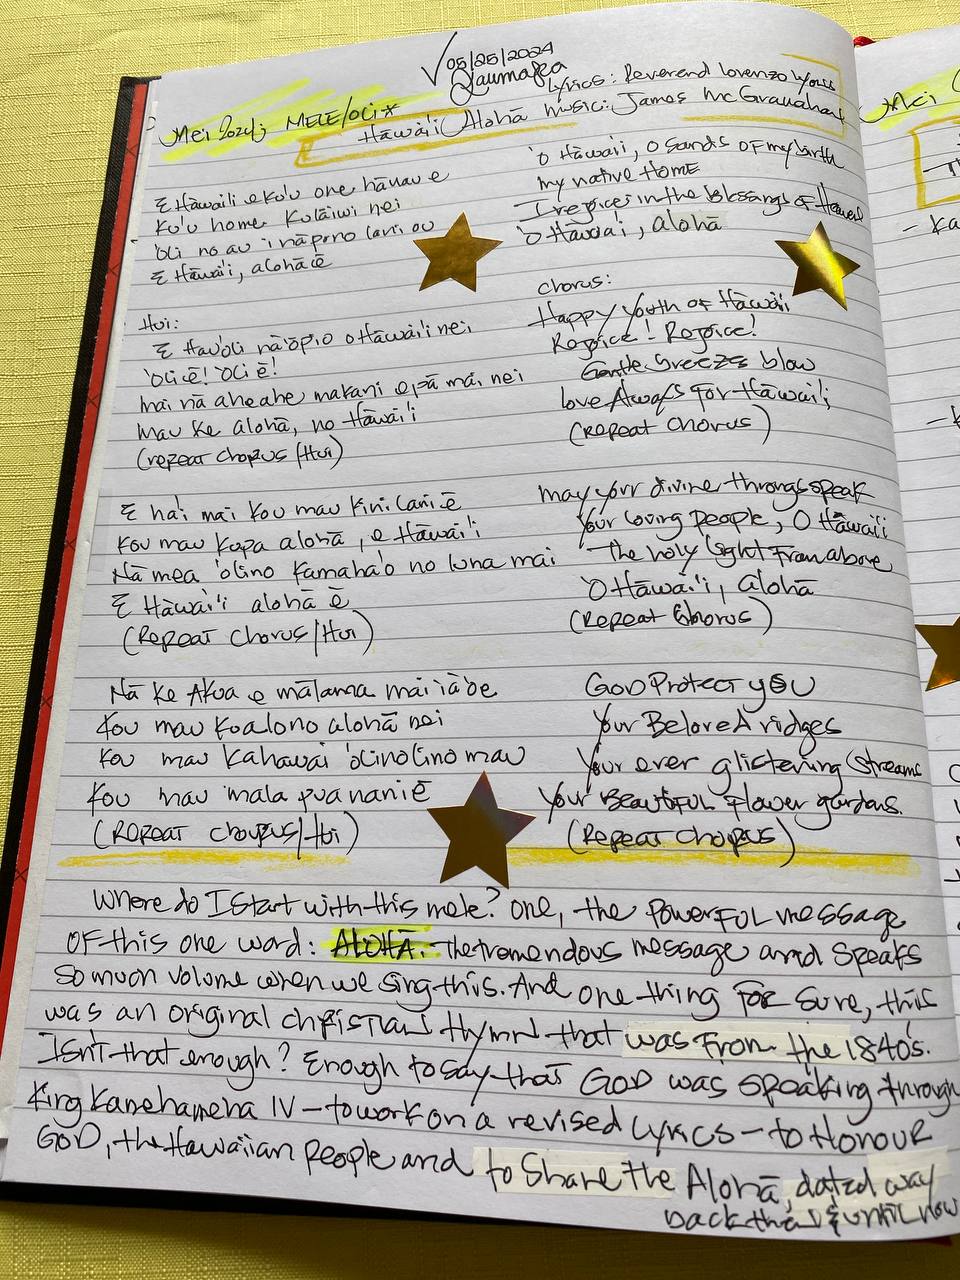 √ 05/25/2024
Kaumaka
Lyrics: Reverend Lorenzo Lyons
Mei 2024; MELE/OLI*
Hawai'i Aloha Music: James McGranahan
E Hawai'i e ku'u one hānau e
Ku'u home Kulāiwi nei
'Oli no au i nā pono lani ou
E Hawai'i, alohā ē
'O Hawai'i, O sands of my birth
my native Home
I rejoice in the Blessings of Heaven
'O Hawai'i, alohā
Hui:
E Hau'oli nā 'ōpio o Hāwai'i nei
'Oli ē! 'Oli ē!
Mai nā aheahe makani e pā mai nei
Mau ke alohā, no Hāwai'i
(repeat chorus/Hui)
chorus:
Happy Youth of Hāwai'i
Rejoice! Rejoice!
Gentle breezes blow
Love Always For Hāwai'i;
(Repeat Chorus)
E ha'i mai kou mau kini lani ē
Kou mau kupa alohā, e Hāwai'i
Nā mea 'ōlino kamaha'o no luna mai
E Hāwai'i alohā ē
(Repeat Chorus/Hui)
May your divine throngs speak
Your loving people, O Hāwai'i
The holy light from above
'O Hāwai'i, alohā
(Repeat Chorus)
Nā ke Akua e mālama mai iā 'oe
Kou mau kualono alohā nei
Kou mau kahawai 'ōlinolino mau
Kou mau māla pua nani ē
(Repeat chorus/Hui)
GOD Protect yOU
Your Beloved ridges
Your ever glistening streams
Your Beautiful Flower gardens.
(Repeat Chorus)
Where do I start with this mele? One, the powerful message
of this one word: ALOHĀ. The tremendous message and speaks
so much volume when we sing this. And one thing for sure, this
was an original christian Hymn that was from the 1840's.
Isn't that enough? Enough to say that GOD was speaking through
King Kamehameha IV – to work on a revised Lyrics – to Honour
GOD, the Hawaiian People and to share the Alohā, dated way
back then & until now
Mei
- Ka